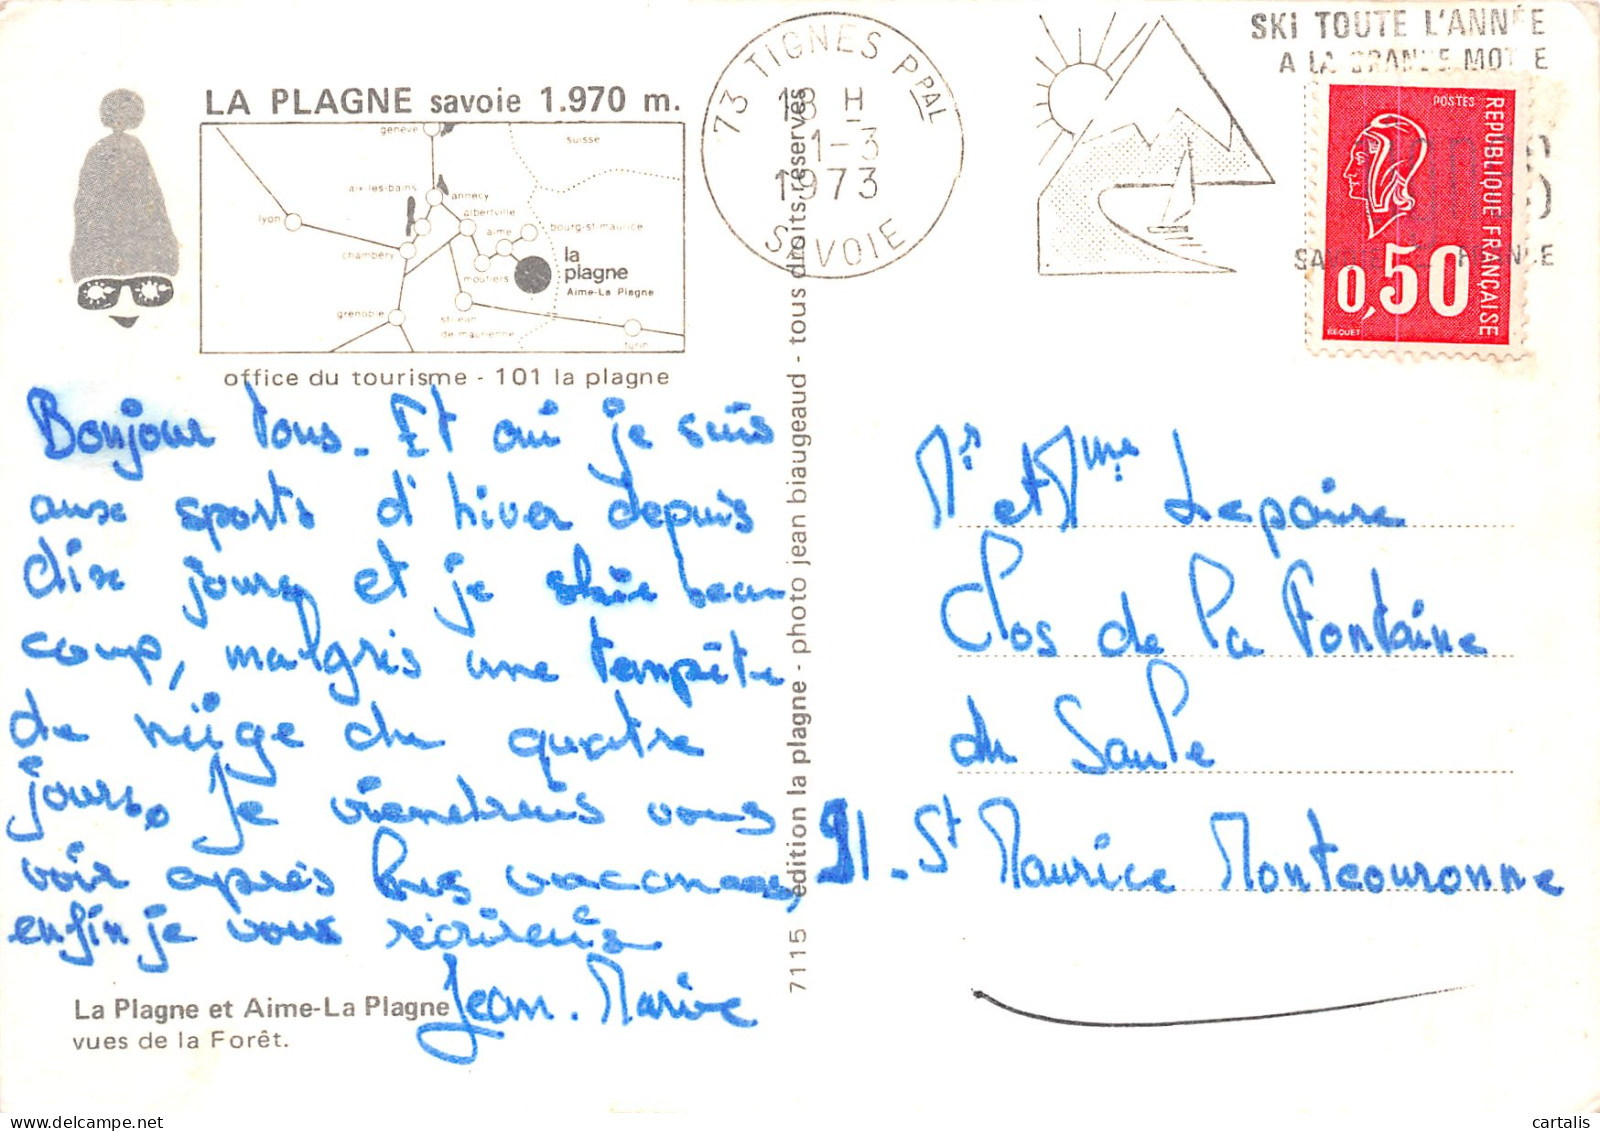 LA PLAGNE savoie 1.970 m.
genève
suisse
aix-les-bains
annecy
lyon
albertville
aime
bourg-st-maurice
chambéry
la
plagne
moutiers
Aime-La Plagne
grenoble
st-jean
de-maurienne
turin
office du tourisme - 101 la plagne
73 TIGNES PPAL
18 H
1-3
1973
SAVOIE
SKI TOUTE L'ANNÉE
A LA GRANDE MOTTE
POSTES
REPUBLIQUE FRANÇAISE
0,50
BEQUET
Bonjour tous. Et oui je suis
aux sports d'hiver depuis
dix jours et je skie beau
coup, malgrés une tempête
de neige de quatre
jours, Je viendrais vous
voir après les vacances,
enfin je vous écrirais
Jean. Marie
La Plagne et Aime-La Plagne
vues de la Forêt.
71115 édition la plagne - photo jean biaugeaud - tous droits réservés
Mr et Mme Lepaire
Clos de la Fontaine
du Saule
91. St Maurice Montcouronne
cartalis